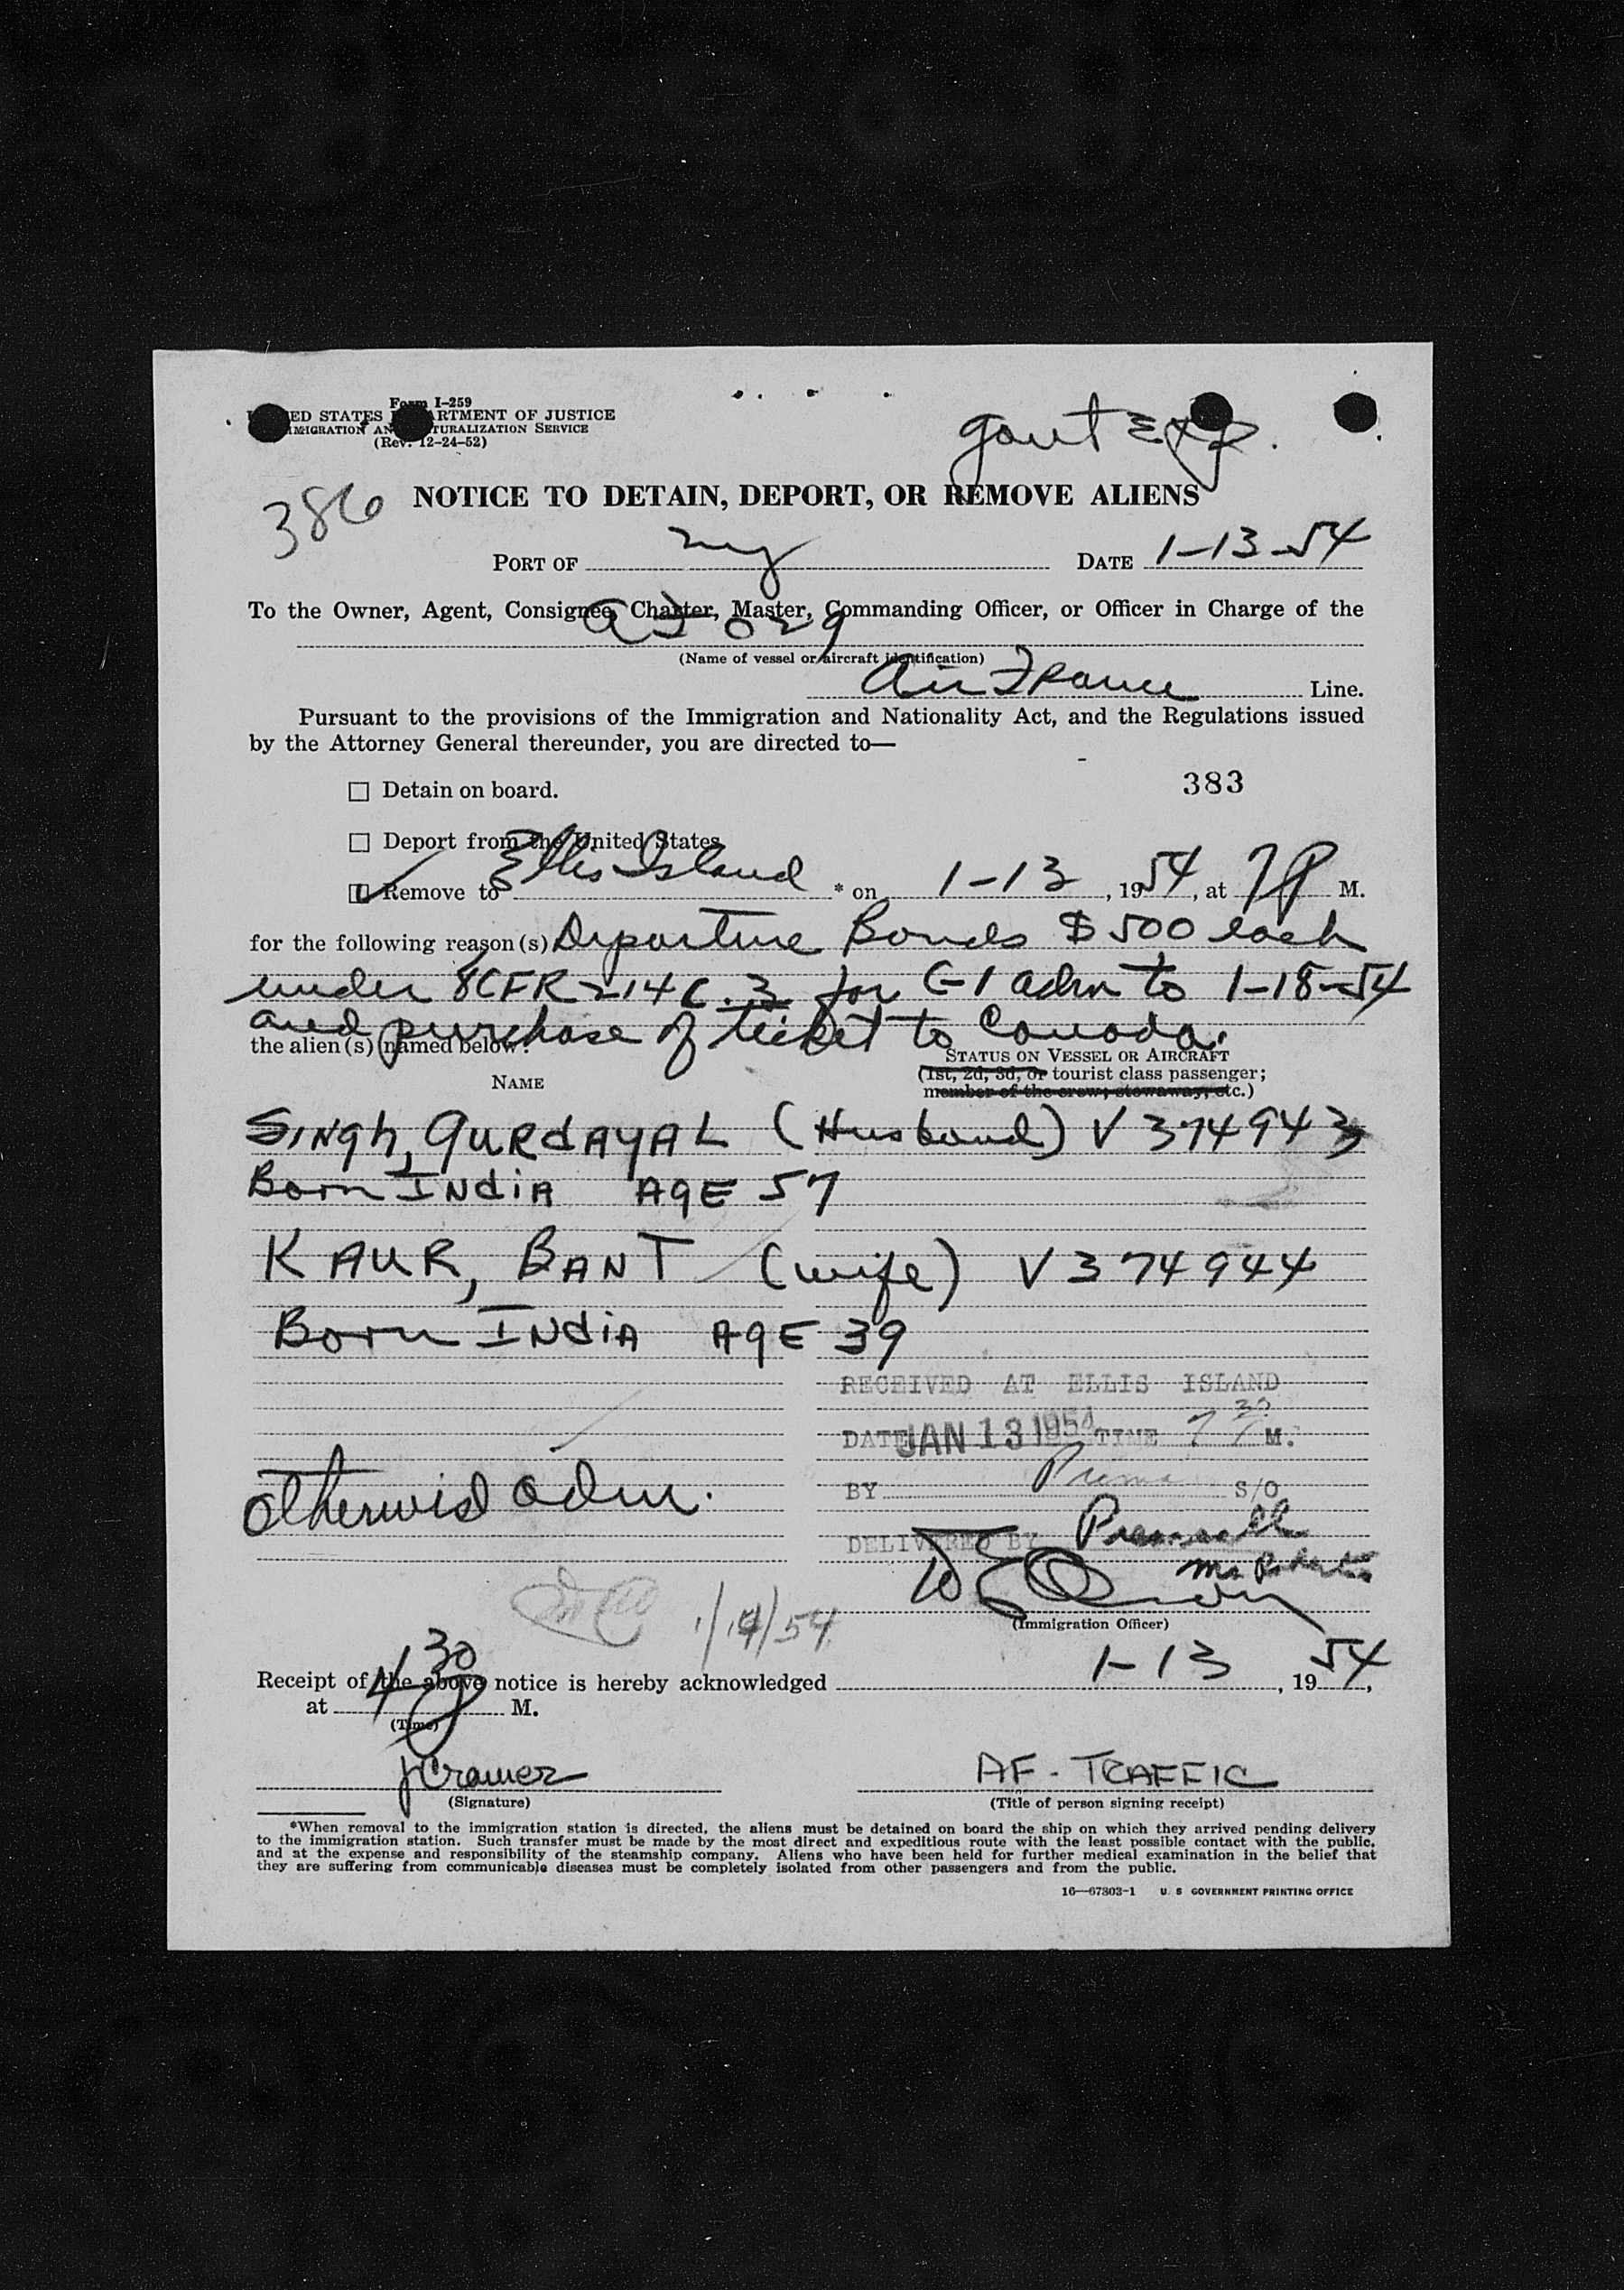 Form I-259
ED STATES ARTMENT OF JUSTICE
IMMIGRATION AN TURALIZATION SERVICE
(Rev. 12-24-52)
Govt Exp.
386
NOTICE TO DETAIN, DEPORT, OR REMOVE ALIENS
PORT OF NY DATE 1-13-54
To the Owner, Agent, Consignee, Charter, Master, Commanding Officer, or Officer in Charge of the
029
(Name of vessel or aircraft identification)
Air France Line.
Pursuant to the provisions of the Immigration and Nationality Act, and the Regulations issued
by the Attorney General thereunder, you are directed to—
383
Detain on board.
Deport from the United States.
Remove to Ellis Island * on 1-13, 1954, at 7P M.
for the following reason(s) Departure Bonds $500 each
under 8CFR 214 C.3 for C-1 adm to 1-18-54
and purchase of ticket to Canada.
the alien(s) named below:
NAME
STATUS ON VESSEL OR AIRCRAFT
(1st, 2d, 3d, or tourist class passenger;
member of the crew; stowaway, etc.)
SINGh, GURdAYAL (Husband) V 374943
Born INdiA AGE 57
KAUR, BANT (wife) V 374944
Born INdiA AGE 39
RECEIVED AT ELLIS ISLAND
DATE JAN 13 1954 TIME 7 30 P M.
BY S/O
DELIVERED BY
otherwise adm.
1/14/54
(Immigration Officer)
Receipt of the above notice is hereby acknowledged 1-13, 1954,
at 4 30 P M.
(Time)
JCramer
(Signature)
AF-TRAFFIC
(Title of person signing receipt)
*When removal to the immigration station is directed, the aliens must be detained on board the ship on which they arrived pending delivery
to the immigration station. Such transfer must be made by the most direct and expeditious route with the least possible contact with the public,
and at the expense and responsibility of the steamship company. Aliens who have been held for further medical examination in the belief that
they are suffering from communicable diseases must be completely isolated from other passengers and from the public.
16—67803-1 U. S GOVERNMENT PRINTING OFFICE